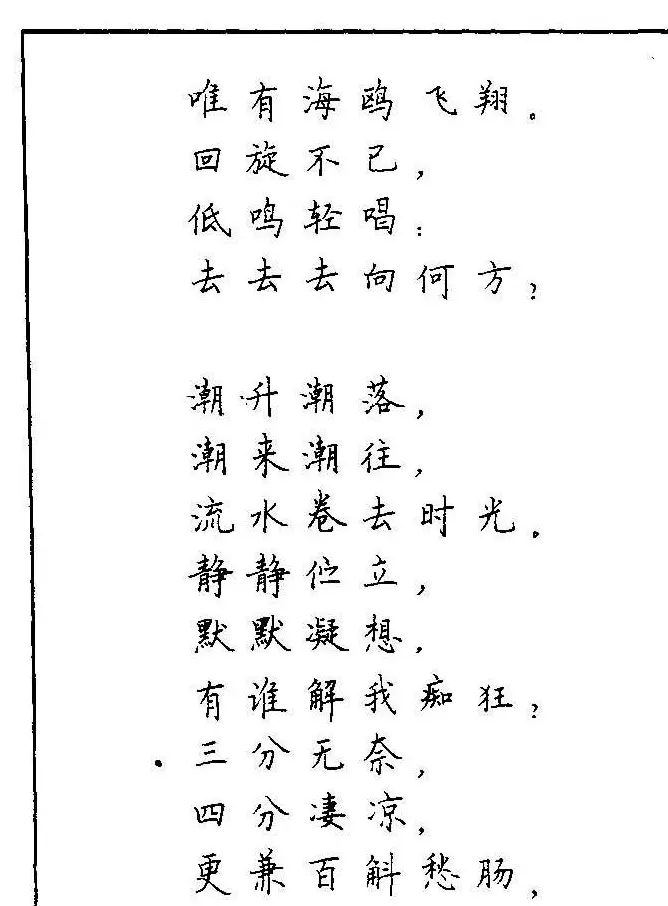 唯有海鸥飞翔。
回旋不已，
低鸣轻唱：
去去去向何方？
潮升潮落，
潮来潮往，
流水卷去时光。
静静伫立，
默默凝想，
有谁解我痴狂？
三分无奈，
四分凄凉，
更兼百斛愁肠，